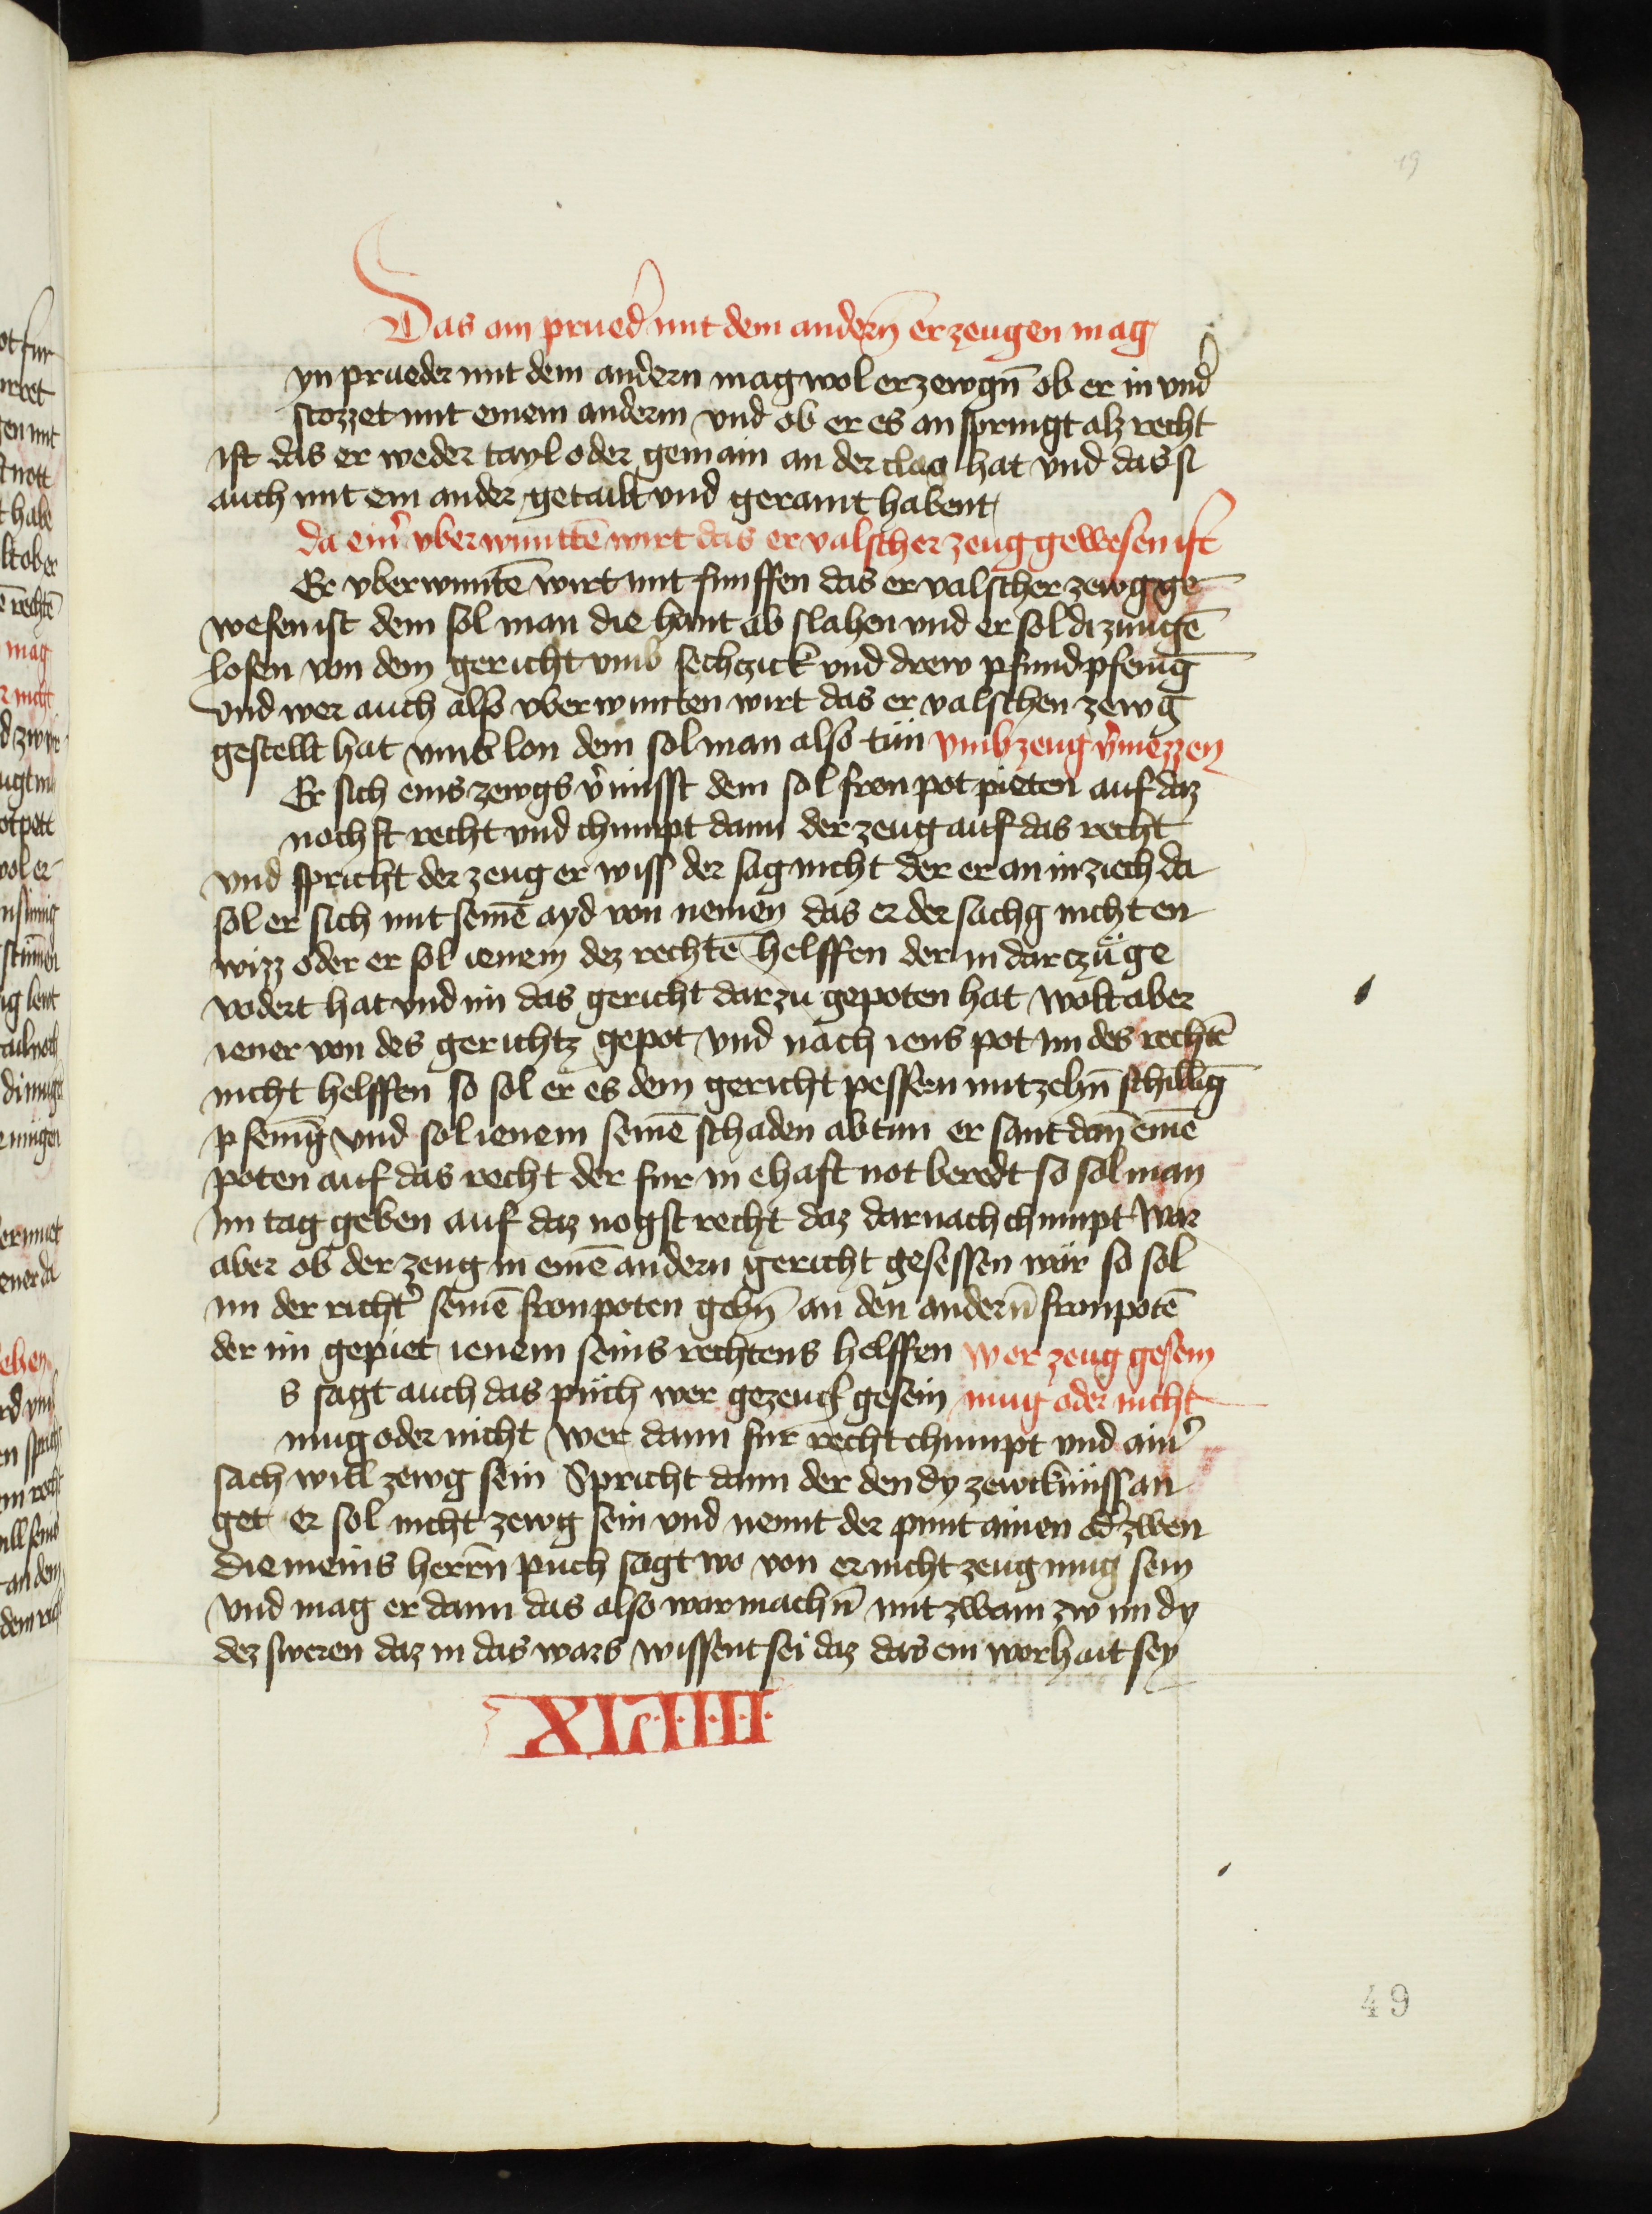 19
Das ain prueđ mit dem andern̄ erzeugen mag
yn prueder mit dem andern mag wol erzewgn̄ ob er in vnđ
stozzet mit einem anderm vnd ob er es an springt alz recht
ist das er weder tayl oder gemain an der clag hat vnd das si
auch mit ein ander getailt vnd geramt habent
da ein᷑ vberwuntte̅ wirt das er valscher zeug gewesen ist
Er vberwunte̅ wirt mit funffen das er valscher zewg ge
wesen ist dem sol man die hant ab slahen vnd er sol di zunge̅
losen von dem gericht vmb sechczick vnd drew pfund pfenig̅
vnd wer auch also vberwunten wirt das er valschen zewg
gestellt hat vmb lon dem sol man also tün vmb zeug v᷑mezzen
Er sich eins zewgs v᷑misst dem sol fron pot pieten auf daz
nochst recht vnd chumpt dann der zeug auf das recht
vnd spricht der zeug er wiss der sag nicht der er an in ziech da
sol er sich mit seine̅ ayd von nemen das er der sachg nicht en
wizz oder er sol ienem dez rechte̅ helffen der in darczü ge
vodert hat vnd im das gericht darzu gepoten hat wolt aber
iener von des gerichtz gepot vnd nach iens pot im des rechte̅
nicht helffen so sol er es dem gericht pessern mit zehn̄ schillig̅
pfenig̅ vnd sol ienem seine̅ schaden ab tun er sant dan̅ eine̅
poten auf das recht der fur in ehaft not beredt so sol man
im tag geben auf daz nogst recht daz darnach chumpt war
aber ob der zeug in eine̅ andern gericht gesessen wär so sol
im der richt᷑ seine̅ fronpoten gebn̄ an den andern̄ fronpote̅
der im gepiet ienem seins rechtens helffen wer zeug gesein
s sagt auch das püch wer gezeuck gesein mug oder nicht
mug oder nicht wer dann fur recht chumpt vnd ain᷑
sach will zewg sein Spricht dann der den dy zewcknüss an
get er sol nicht zewg sein vnd nennt der punt ainen od᷑ zwen
die meins herrn̄ puch sagt wo von er nicht zeug mug sein
vnd mag er dann das also war machn̄ mit zwain zw im dy
dez sweren daz in das wars wissent sei daz das ein worhait sey
XLVIIII
49